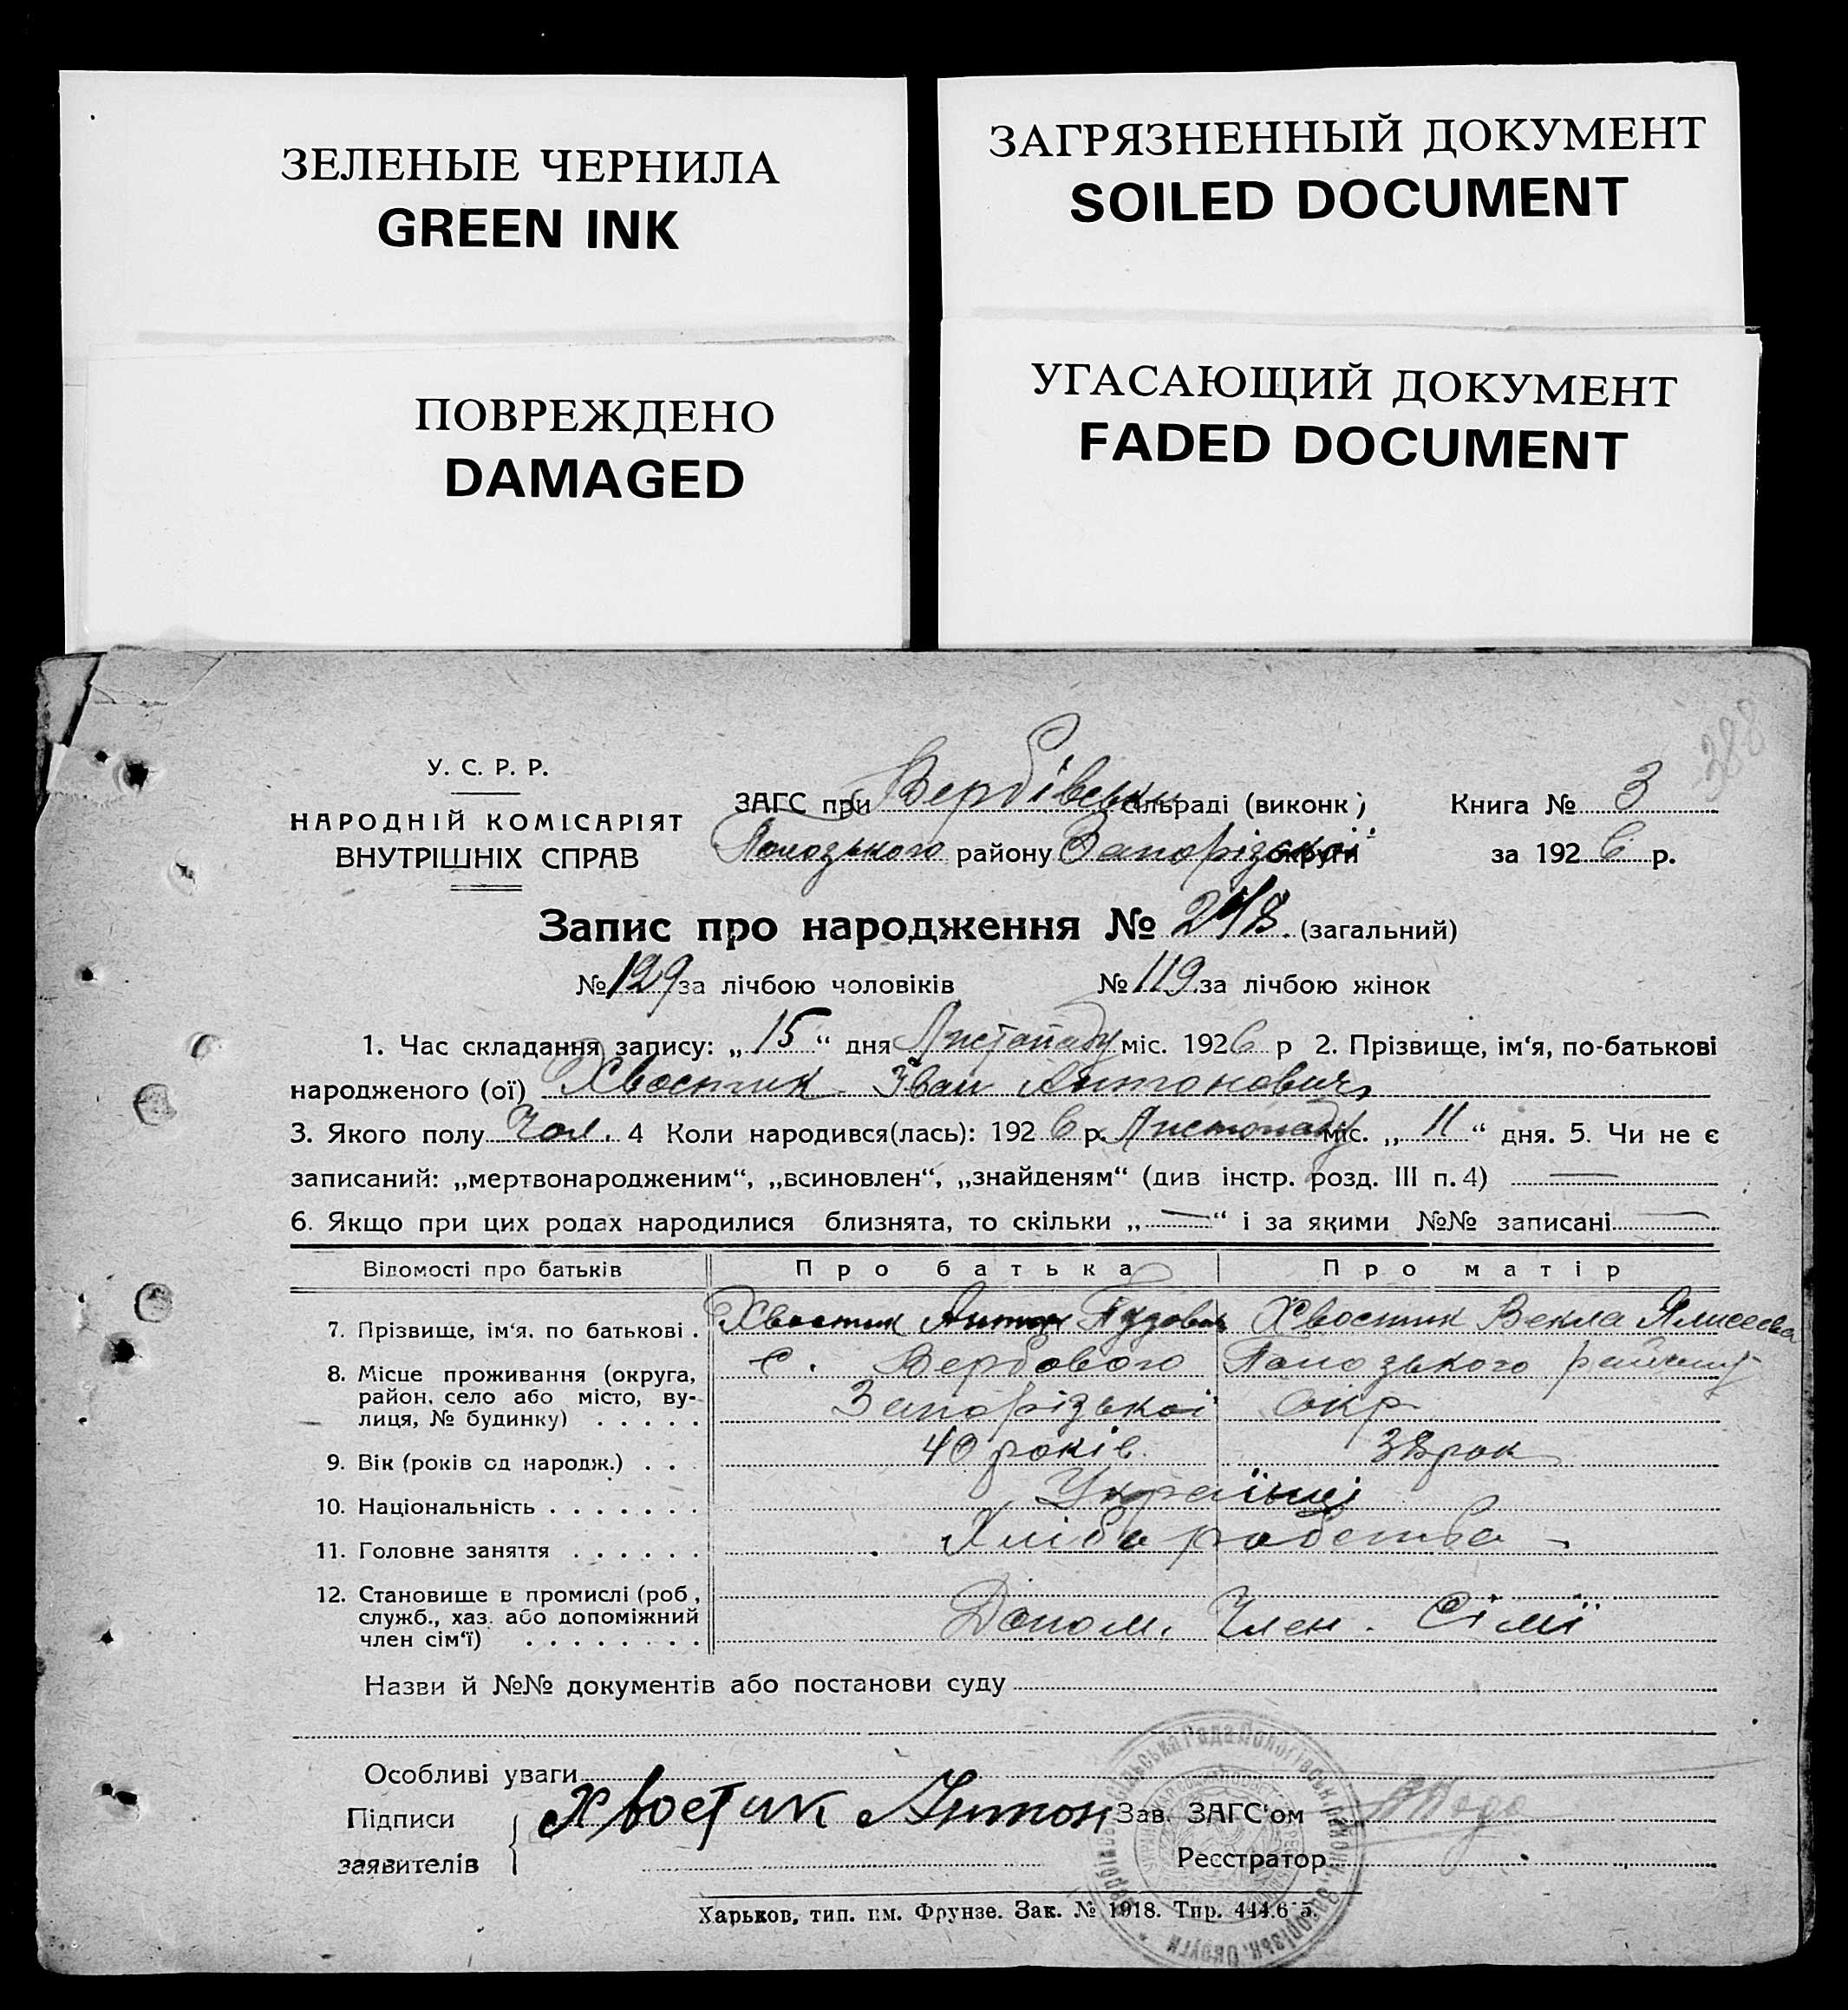 ЗЕЛЕНЫЕ ЧЕРНИЛА
GREEN INK
ЗАГРЯЗНЕННЫЙ ДОКУМЕНТ
SOILED DOCUMENT
ПОВРЕЖДЕНО
DAMAGED
УГАСАЮЩИЙ ДОКУМЕНТ
FADED DOCUMENT
388
У. С. Р. Р.
НАРОДНІЙ КОМІСАРІЯТ
ВНУТРІШНІХ СПРАВ
ЗАГС при Вербівськи сільраді (виконк.) Книга № 3
Полозького району Запорізської округи за 1926 р.
Запис про народження № 248. (загальний)
№ 129 за лічбою чоловіків № 119 за лічбою жінок
1. Час складання запису: „15“ дня Листопаду міс. 1926 р 2. Прізвище, ім‘я, по-батькові
народженого (ої) Хвостик Іван Антонович
3. Якого полу Чол. 4 Коли народився(лась): 1926 р. Листопаду міс. „11“ дня. 5. Чи не є
записаний: „мертвонародженим“, „всиновлен“, „знайденям“ (див інстр. розд. III п. 4) —
6. Якщо при цих родах народилися близнята, то скільки „—“ і за якими №№ записані —
Відомості про батьків Про батька Про матір
7. Прізвище, ім‘я. по батькові . Хвостик Антон Пудов Хвостик Векла Ялисеева
8. Місце проживання (округа, с. Вербового Полозького району
район, село або місто, ву-
лиця, № будинку) . . . . . Запорізької окр
9. Вік (років од народж.) . . . 40 років 38 рок
10. Національність . . . . . . . Українці
11. Головне заняття . . . . . . Хліборобства
12. Становище в промислі (роб,
служб., хаз. або допоміжний
член сім‘ї) . . . . . . . . Допом. Член. Сімї
Назви й №№ документів або постанови суду
Особливі уваги
Підписи Хвостик Антон Зав. ЗАГС‘ом
заявителів Реєстратор
Харьков, тип. им. Фрунзе. Зак. № 1918. Тир. 444.6 5.